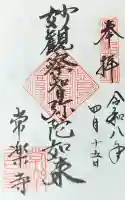 奉拝
令和八年
四月十五日
妙觀察智弥陀如来
常楽寺